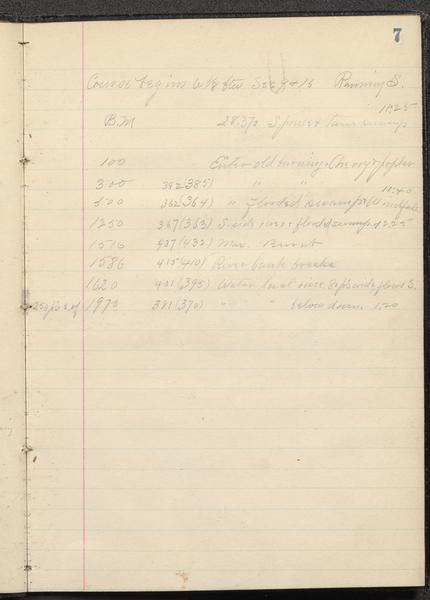 7
Course begins Sec 9 & 16 Running S.
11:25
B.M 28.372 Spruce & swamp
100 Enter old burning. Cherry & popler
300 392(385) " "
11:40
500 362(364) " flooded swamp & Windfalls
1250 367(363) S. side & flooded swamp 12:25
1576 437(432) Burnt
1586 415(410) River bank breaks
1620 401(395) Water level river. wide flows S.
1973 381(370) " " below dam. 1:20